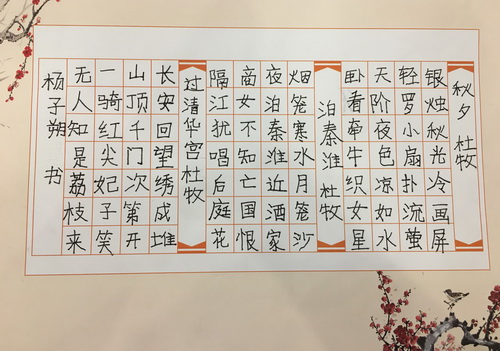 秋夕 杜牧
银烛秋光冷画屏
轻罗小扇扑流萤
天阶夜色凉如水
卧看牵牛织女星
泊秦淮 杜牧
烟笼寒水月笼沙
夜泊秦淮近酒家
商女不知亡国恨
隔江犹唱后庭花
过清华宫 杜牧
长安回望绣成堆
山顶千门次第开
一骑红尖妃子笑
无人知是荔枝来
杨子朔 书